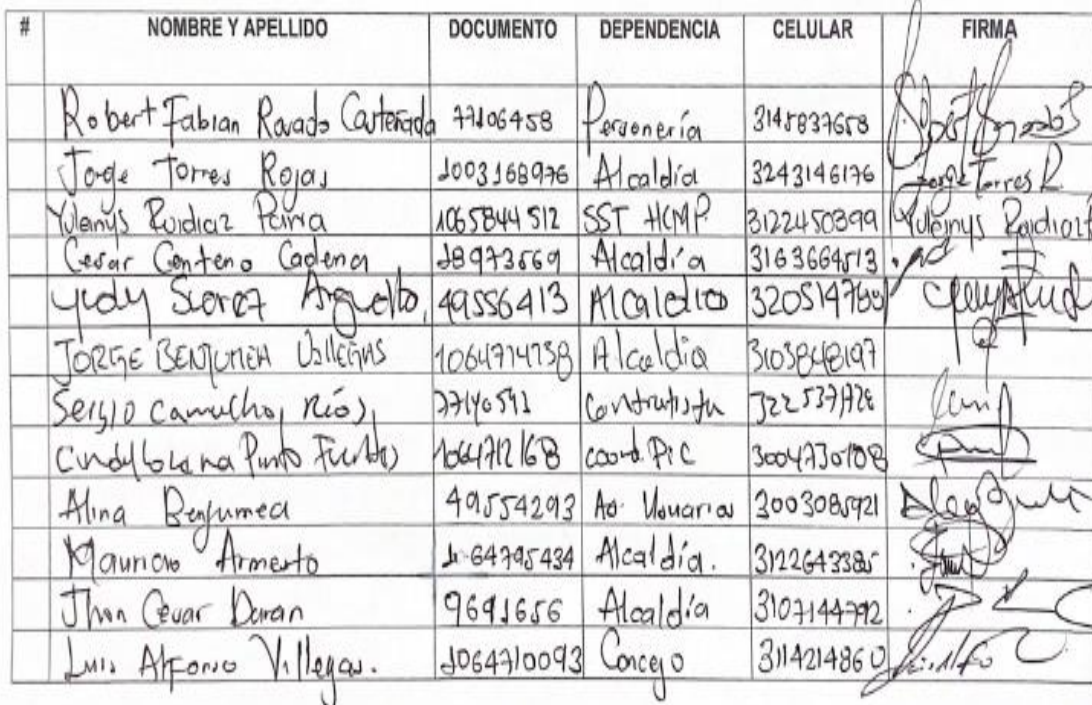 # NOMBRE Y APELLIDO DOCUMENTO DEPENDENCIA CELULAR FIRMA
Robert Fabian Rovado Casteñada 77106458 Personería 3145837658
Jorge Torres Rojas 1003168976 Alcaldía 3243146176 Jorge Torres R.
Yuleinys Ruidiaz Parra 1065844512 SST HCMP 3122450399 Yuleinys Ruidiaz
Cesar Centeno Cadena 18973569 Alcaldía 3163664513
Yudy Suarez 49556413 Alcaldia
JORGE BENJUMEA VILLEGAS 1064714738 Alcaldia 3103848197
Sergio Camacho Ríos 77140541 Contratista
Cindy Lorena Pinto Fuentes 1064712168 coord. PIC 3004730108
Alina Benjumea 49554293 Ad. Usuarios 3003085921
Mauricio Armesto Alcaldía. 3122643385
Jhon Cesar Duran 9691656 Alcaldía 3107144792
Luis Alfonso Villegas. 1064710093 Concejo 3114214860